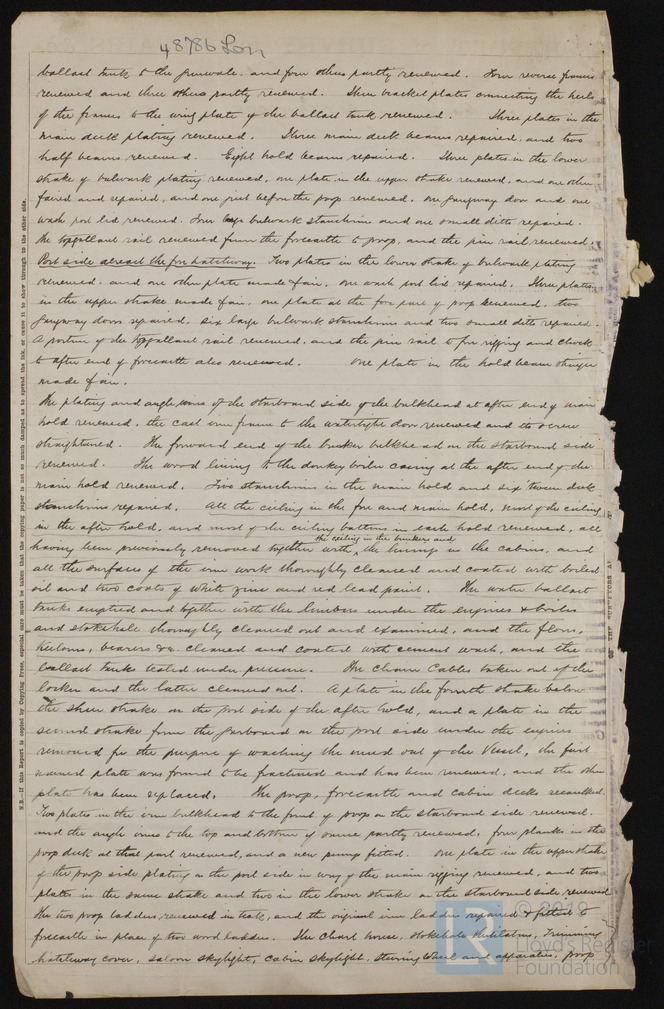 48786 Lon
ballast tank to the gunwale, and four others partly renewed. Four reverse frames
renewed and three others partly renewed. Three bracket plates connecting the heels
of the frames to the wing plate of the ballast tank renewed. Three plates in the
main deck plating renewed. Three main deck beams repaired, and two
half beams renewed. Eight hold beams repaired. Three plates in the lower
strake of bulwark plating renewed, one plate in the upper strake renewed, and one other
faired and repaired, and one just before the poop renewed. One gangway door and one
wash port lid renewed. Four large bulwark stanchions and one small ditto repaired.
The topgallant rail renewed from the forecastle to poop, and the pin rail renewed.
Port side abreast the fore hatchway. Two plates in the lower strake of bulwark plating
renewed, and one other plate made fair, one wash port lid repaired. Three plates
in the upper strake made fair, one plate at the fore part of poop renewed, two
gangway doors repaired, six large bulwark stanchions and two small ditto repaired.
A portion of the topgallant rail renewed, and the pin rail to fore rigging and chock
to after end of forecastle also renewed. One plate in the hold beam stringer
made fair.
The plating and angle irons of the starboard side of the bulkhead at after end of main
hold renewed, the cast iron frame to the watertight door renewed and its screw
straightened. The forward end of the bunker bulkhead on the starboard side
renewed. The wood lining to the donkey boiler casing at the after end of the
main hold renewed. Five stanchions in the main hold and six 'tween deck
stanchions repaired. All the ceiling in the fore and main hold, most of the ceiling
in the after hold, and most of the ceiling battens in each hold renewed, all
the ceiling in the bunkers and
having been previously removed together with the linings in the cabins, and
all the surfaces of the iron work thoroughly cleaned and coated with boiled
oil and two coats of white zinc and red lead paint. The water ballast
tanks emptied and together with the limbers under the engines & boiler
and stokehole thoroughly cleaned out and examined, and the floors,
keelsons, bearers &c. cleaned and coated with cement wash, and the
ballast tanks tested under pressure. The Chain Cables taken out of the
locker and the latter cleaned out. A plate in the fourth strake below
the sheer strake on the port side of the after hold, and a plate in the
second strake from the garboard on the port side under the engines
removed for the purpose of washing the mud out of the Vessel, the first
named plate was found to be fractured and has been renewed, and the other
plate has been replaced. The poop, forecastle and cabin decks recaulked.
Two plates in the iron bulkhead to the front of poop on the starboard side renewed,
and the angle irons to the top and bottom of same partly renewed, four planks in the
poop deck at that part renewed, and a new pump fitted. One plate in the upper strake
of the poop side plating on the port side in way of the main rigging renewed, and two
plates in the same strake and two in the lower strake on the starboard side renewed
The two poop ladders renewed in teak, and the original iron ladder repaired & fitted to
forecastle in place of two wood ladders. The Chart house, Stokehole Ventilators, Trimming
hatchway cover, saloon skylight, Cabin skylight, steering wheel and apparatus, poop
N.B.—If this Report is copied by Copying Press, especial care must be taken that the copying paper is not so much damped as to spread the ink, or cause it to show through to the other side.
© 2019
Lloyd's Register
Foundation